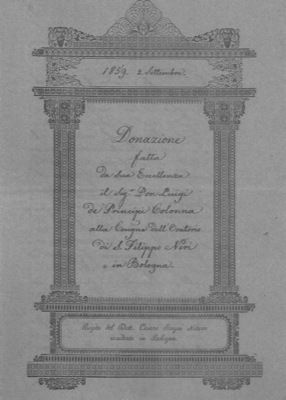 1859. 2. Settembre.
Donazione
fatta
da Sua Eccellenza
il Sigr. Don Luigi
de Principi Colonna
alla Congne dell'Oratorio
di S. Filippo Neri
in Bologna.
Rogito del Dott. Cesare Notaro
residente in Bologna